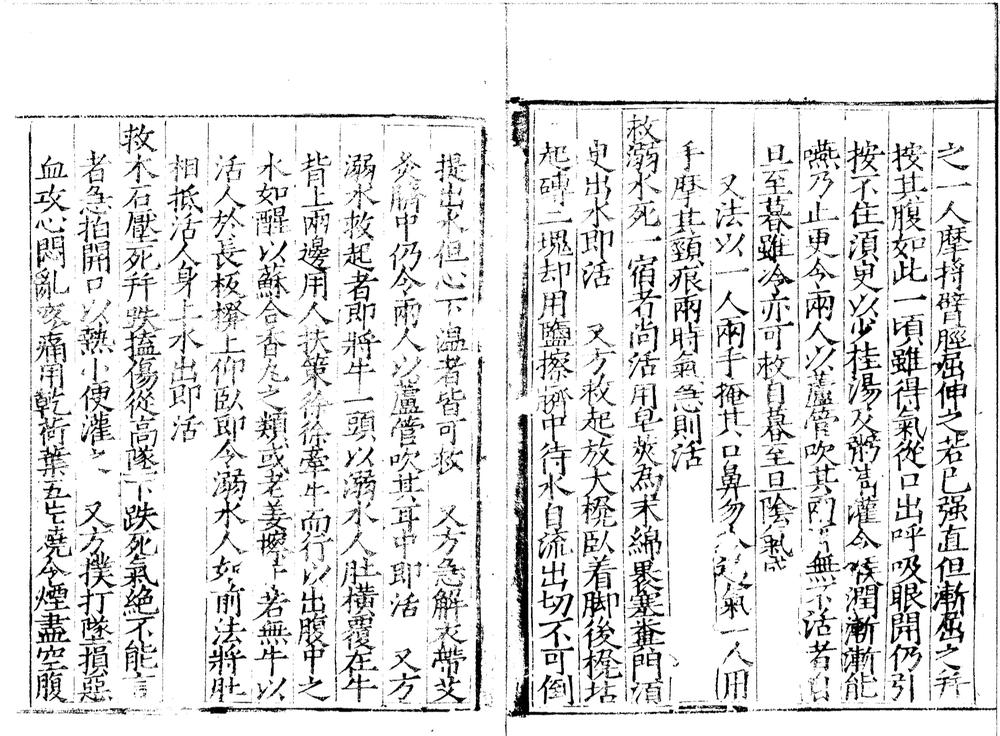 之一人摩捋臂脛屈伸之若已强直但漸屈之幷
按其腹如此一頃雖得氣從口出呼吸眼開仍引
按不住須臾以少桂湯及粥清灌令喉潤漸漸能
嚥乃止更令兩人以蘆管吹其兩耳無不活者自
旦至暮雖冷亦可救自暮至旦陰氣盛
又法以一人兩手掩其口鼻勿令透氣一人用
手摩其頸痕兩時氣急則活
救溺水死一宿者尚活用皂莢為末綿裹塞糞門須
臾出水即活 又方救起放大櫈臥着脚後櫈坫
起磚二塊却用鹽擦臍中待水自流出切不可倒
提出水但心下温者皆可救 又方急解衣帶艾
灸臍中仍令兩人以蘆管吹其耳中即活 又方
溺水救起者即將牛一頭以溺水人肚橫覆在牛
背上兩邊用人扶策徐徐牽牛而行以出腹中之
水如醒以蘇合香丸之類或老姜擦牙若無牛以
活人於長板櫈上仰臥即令溺水人如前法將肚
相抵活人身上水出即活
救木石壓死幷跌磕傷從高墜下跌死氣絶不能言
者急拍開口以熱小便灌之 又方撲打墜損惡
血攻心悶亂疼痛用乾荷葉五片燒令煙盡空腹